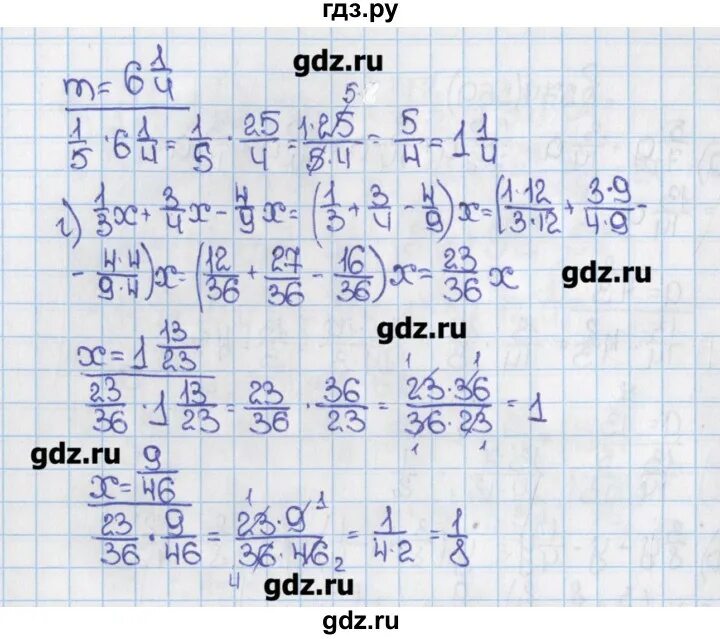 гдз.ру
gdz.ru
m = 6 1/4
1/5 · 6 1/4 = 1/5 · 25/4 = 1·25/5·4 = 5/4 = 1 1/4
5
г) 1/3 x + 3/4 x − 4/9 x = (1/3 + 3/4 − 4/9) x = (1·12/3·12 + 3·9/4·9 −
− 4·4/9·4) x = (12/36 + 27/36 − 16/36) x = 23/36 x
gdz.ru
gdz.ru
x = 1 13/23
23/36 · 1 13/23 = 23/36 · 36/23 = 23·36/36·23 = 1
1 1
1 1
gdz.ru
x = 9/46
23/36 · 9/46 = 23·9/36·46 = 1/4·2 = 1/8
1 1
4 2
gdz.ru
gdz.ru